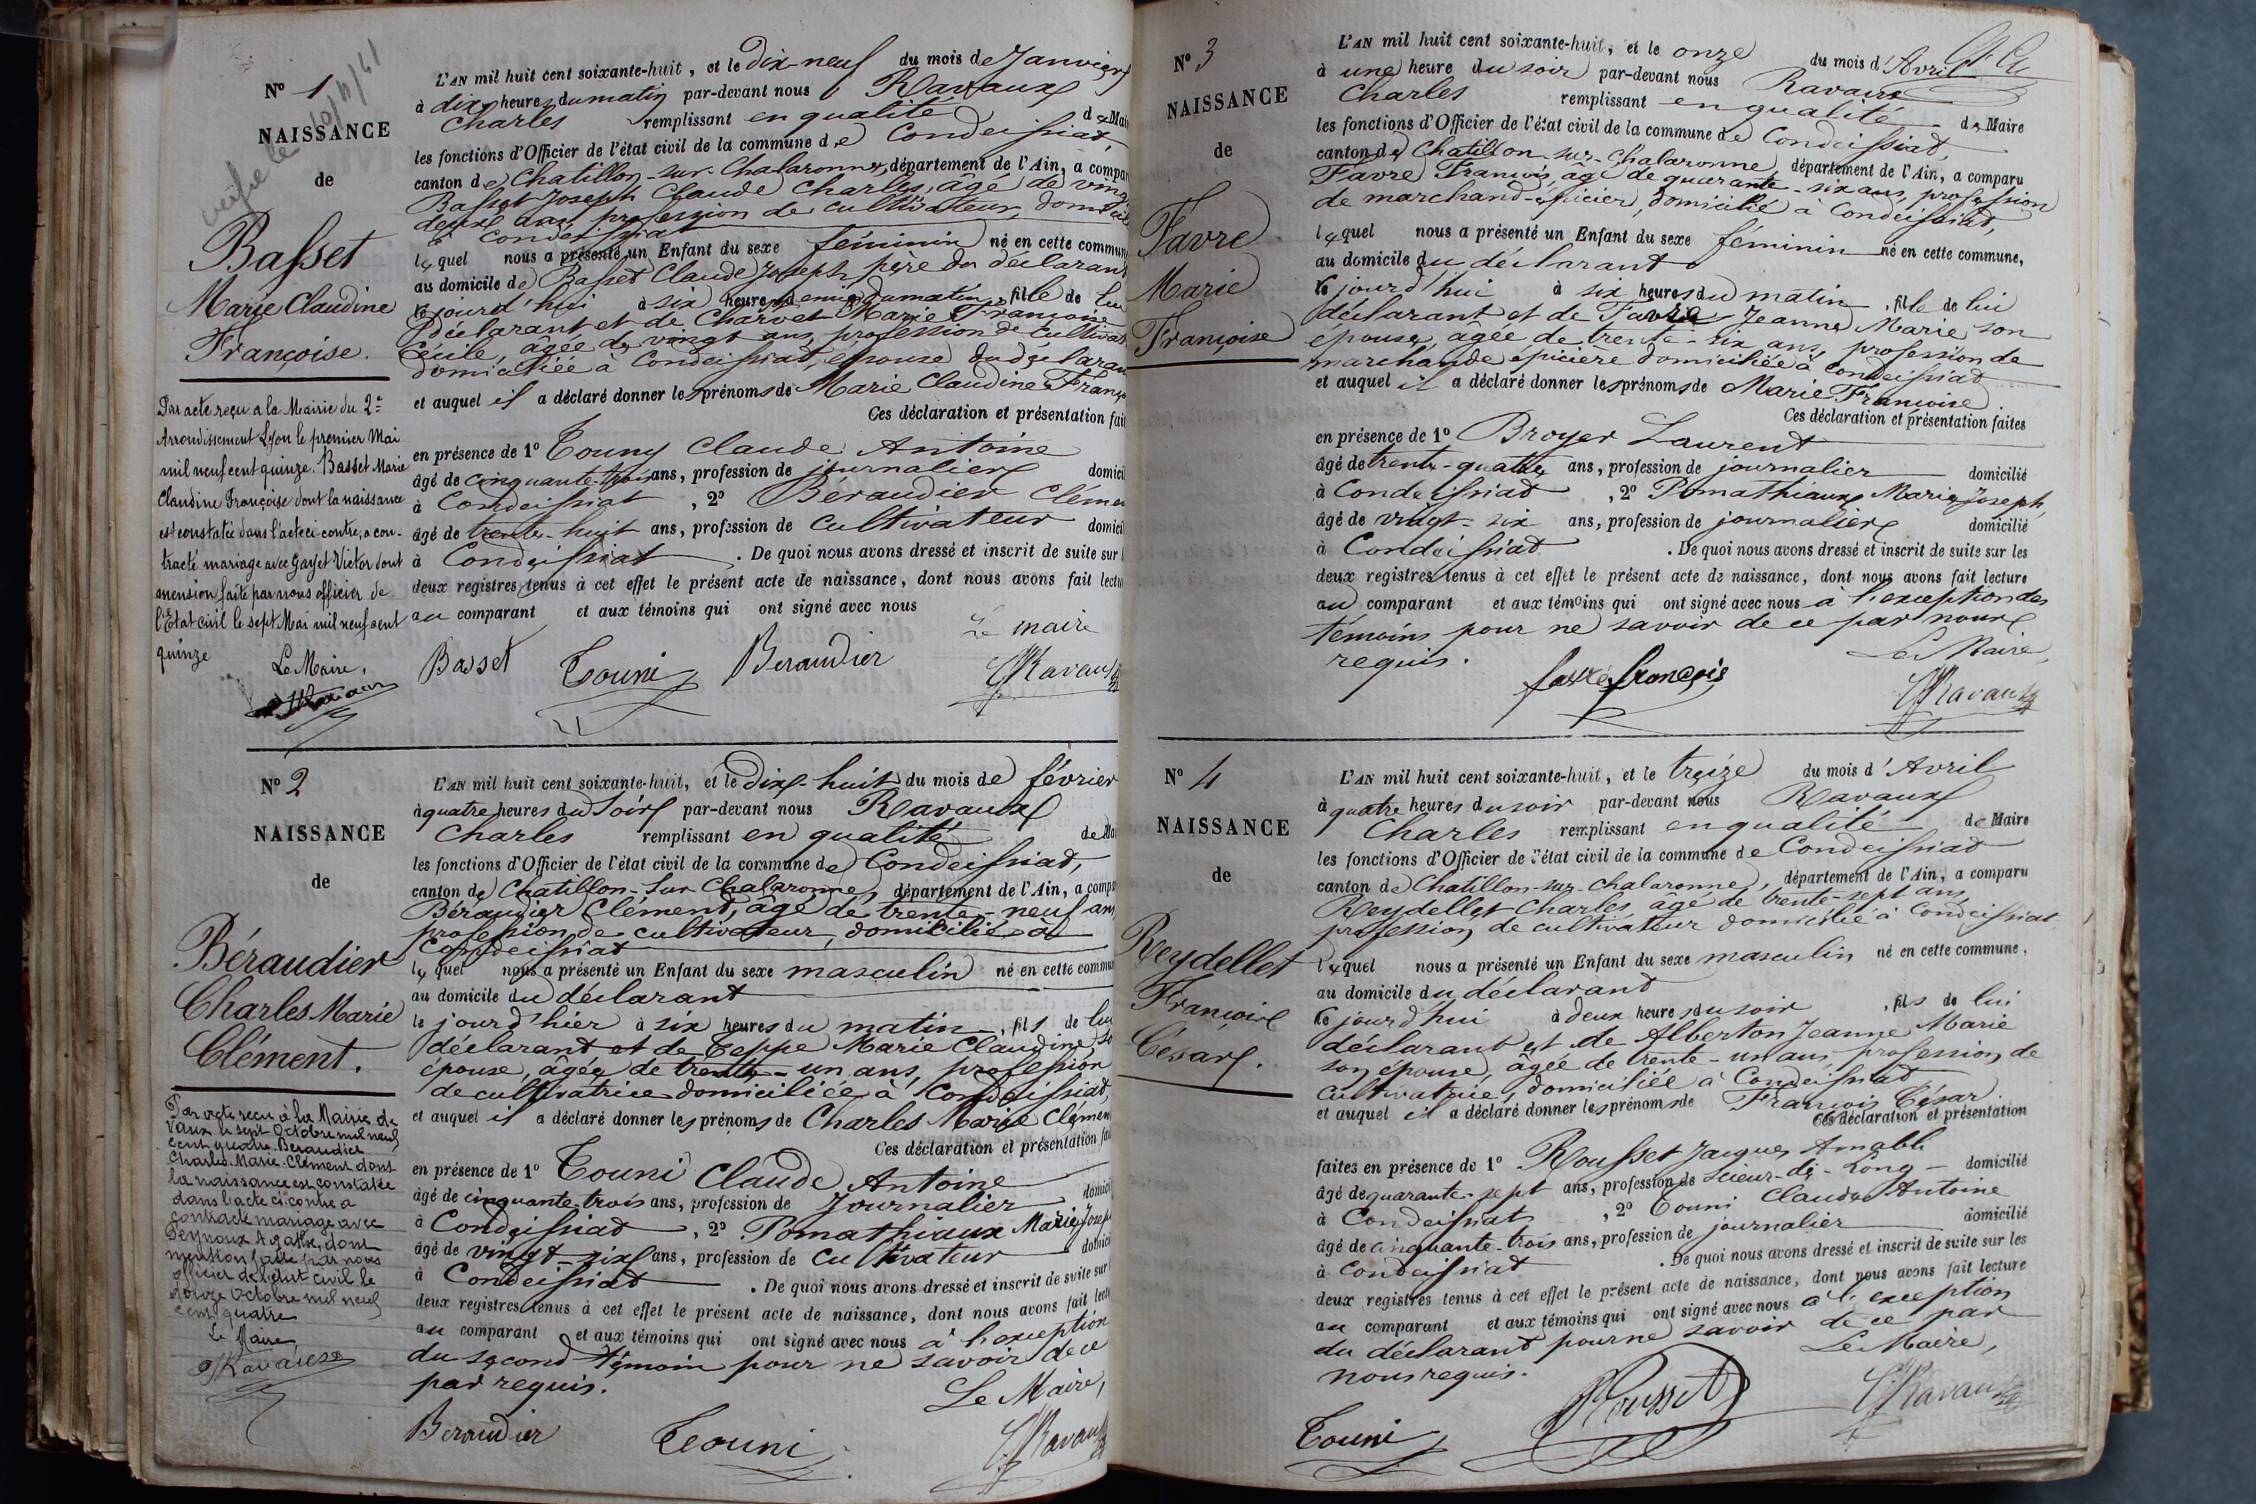 N° 1
NAISSANCE
de
Basset
Marie Claudine
Françoise.
vérifié le 10/4/41
Par acte reçu a la Mairie du 2e
Arrondissement Lyon le premier Mai
mil neuf cent quinze. Basset Marie
Claudine Françoise dont la naissance
est constatée dans l'acte ci contre, a con-
tracté mariage avec Gayet Victor dont
mension faite par nous officier de
l'Etat civil le sept Mai mil neuf cent
quinze
Le Maire,
L'AN mil huit cent soixante-huit, et le dix-neuf du mois de Janvier
à dix heures du matin par-devant nous Ravaux
Charles remplissant en qualité de Mai
les fonctions d'Officier de l'état civil de la commune de Condeissiat,
canton de Chatillon-sur-Chalaronne, département de l'Ain, a compar
Basset Joseph Claude Charles, âgé de vingt
deux ans, profession de cultivateur, domicil
à Condeissiat
lequel nous a présenté un Enfant du sexe féminin né en cette commun
au domicile de Basset Claude Joseph père du déclarant
le jourd'hui à six heures demie du matin, fille de lu
déclarant et de Charvet Marie Françoise
Cécile, âgée de vingt ans, profession de cultivat
domiciliée à Condeissiat, épouse du déclaran
et auquel il a déclaré donner les prénoms de Marie Claudine Franç
Ces déclaration et présentation fait
en présence de 1° Touny Claude Antoine
âgé de cinquante-trois ans, profession de journalier domicil
à Condeissiat, 2° Béraudier Clémen
âgé de trente-huit ans, profession de cultivateur domicil
à Condeissiat. De quoi nous avons dressé et inscrit de suite sur l
deux registres tenus à cet effet le présent acte de naissance, dont nous avons fait lectu
au comparant et aux témoins qui ont signé avec nous
Le maire
Basset Touni Beraudier Ravaux
N° 2
NAISSANCE
de
Béraudier
Charles Marie
Clément.
Par acte reçu à la Mairie de
Vaux le sept Octobre mil neuf
cent quatre Beraudier
Charles Marie Clément dont
la naissance est constatée
dans l'acte ci contre a
contracté mariage avec
Peynoux Agathe, dont
mention faite par nous
officier de l'état civil le
douze Octobre mil neuf
cent quatre
Le Maire
Ravaux
L'AN mil huit cent soixante-huit, et le dix-huit du mois de février
à quatre heures du soir par-devant nous Ravaux
Charles remplissant en qualité de Mai
les fonctions d'Officier de l'état civil de la commune de Condeissiat,
canton de Chatillon-sur Chalaronne, département de l'Ain, a compa
Béraudier Clément, âgé de trente-neuf ans
profession de cultivateur, domicilié à
Condeissiat
lequel nous a présenté un Enfant du sexe masculin né en cette commun
au domicile du déclarant
le jourd'hier à six heures du matin, fils de lui
déclarant et de Teppe Marie Claudine so
épouse, âgée de trente-un ans, profession
de cultivatrice domiciliée à Condeissiat,
et auquel il a déclaré donner les prénoms de Charles Marie Clémen
Ces déclaration et présentation fai
en présence de 1° Touni Claude Antoine
âgé de cinquante-trois ans, profession de Journalier domicil
à Condeissiat, 2° Pomathiaux Marie Josep
âgé de vingt-six ans, profession de cultivateur domici
à Condeissiat. De quoi nous avons dressé et inscrit de suite sur
deux registres tenus à cet effet le présent acte de naissance, dont nous avons fait lectu
au comparant et aux témoins qui ont signé avec nous à l'exception
du second témoin pour ne savoir de ce
par requis.
Le Maire,
Beraudier Touni Ravaux
N° 3
NAISSANCE
de
Favre
Marie
Françoise
L'AN mil huit cent soixante-huit, et le onze du mois d'Avril
à une heure du soir par-devant nous Ravaux
Charles remplissant en qualité de Maire
les fonctions d'Officier de l'état civil de la commune de Condeissiat,
canton de Chatillon-sur-Chalaronne, département de l'Ain, a comparu
Favre François, âgé de quarante-six ans, profession
de marchand-épicier, domicilié à Condeissiat,
lequel nous a présenté un Enfant du sexe féminin né en cette commune,
au domicile du déclarant
le jourd'hui à six heures du matin, fille de lui
déclarant et de Favre Jeanne Marie son
épouse, âgée de trente-six ans, profession de
marchande épicière domiciliée à Condeissiat
et auquel il a déclaré donner les prénoms de Marie Françoise
Ces déclaration et présentation faites
en présence de 1° Broyer Laurent
âgé de trente-quatre ans, profession de journalier domicilié
à Condeissiat, 2° Pomathiaux Marie Joseph,
âgé de vingt-six ans, profession de journalier domicilié
à Condeissiat. De quoi nous avons dressé et inscrit de suite sur les
deux registres tenus à cet effet le présent acte de naissance, dont nous avons fait lecture
au comparant et aux témoins qui ont signé avec nous à l'exception des
témoins pour ne savoir de ce par nous
requis.
Le Maire,
favre françois Ravaux
N° 4
NAISSANCE
de
Reydellet
François
César.
L'AN mil huit cent soixante-huit, et le treize du mois d'Avril
à quatre heures du soir par-devant nous Ravaux
Charles remplissant en qualité de Maire
les fonctions d'Officier de l'état civil de la commune de Condeissiat
canton de Chatillon-sur-Chalaronne, département de l'Ain, a comparu
Reydellet Charles, âgé de trente-sept ans,
profession de cultivateur domicilié à Condeissiat
lequel nous a présenté un Enfant du sexe masculin né en cette commune,
au domicile du déclarant
le jourd'hui à deux heures du soir, fils de lui
déclarant et de Alberton Jeanne Marie
son épouse, âgée de trente-un ans, profession de
cultivatrice, domiciliée à Condeissiat
et auquel il a déclaré donner les prénoms de François César.
Ces déclaration et présentation
faites en présence de 1° Rousset Jacques Amable
âgé de quarante-sept ans, profession de Scieur-de-Long domicilié
à Condeissiat, 2° Touni Claude Antoine
âgé de cinquante-trois ans, profession de journalier domicilié
à Condeissiat. De quoi nous avons dressé et inscrit de suite sur les
deux registres tenus à cet effet le présent acte de naissance, dont nous avons fait lecture
au comparant et aux témoins qui ont signé avec nous à l'exception
du déclarant pour ne savoir de ce par
nous requis.
Le Maire,
Touni Rousset Ravaux